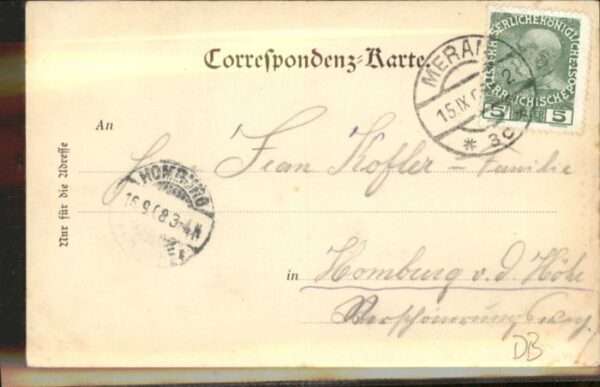 Correspondenz-Karte.
MERAN
15.IX.
* 3c
KAISERLICHE KÖNIGLICHE
ÖSTERREICHISCHE POST
5 5
An
Jean Kofler - Familie
HOMBURG
16.9.08.3-4N
Nur für die Adresse
in
Homburg v. d. Höhe
Verschönerungsweg
DB